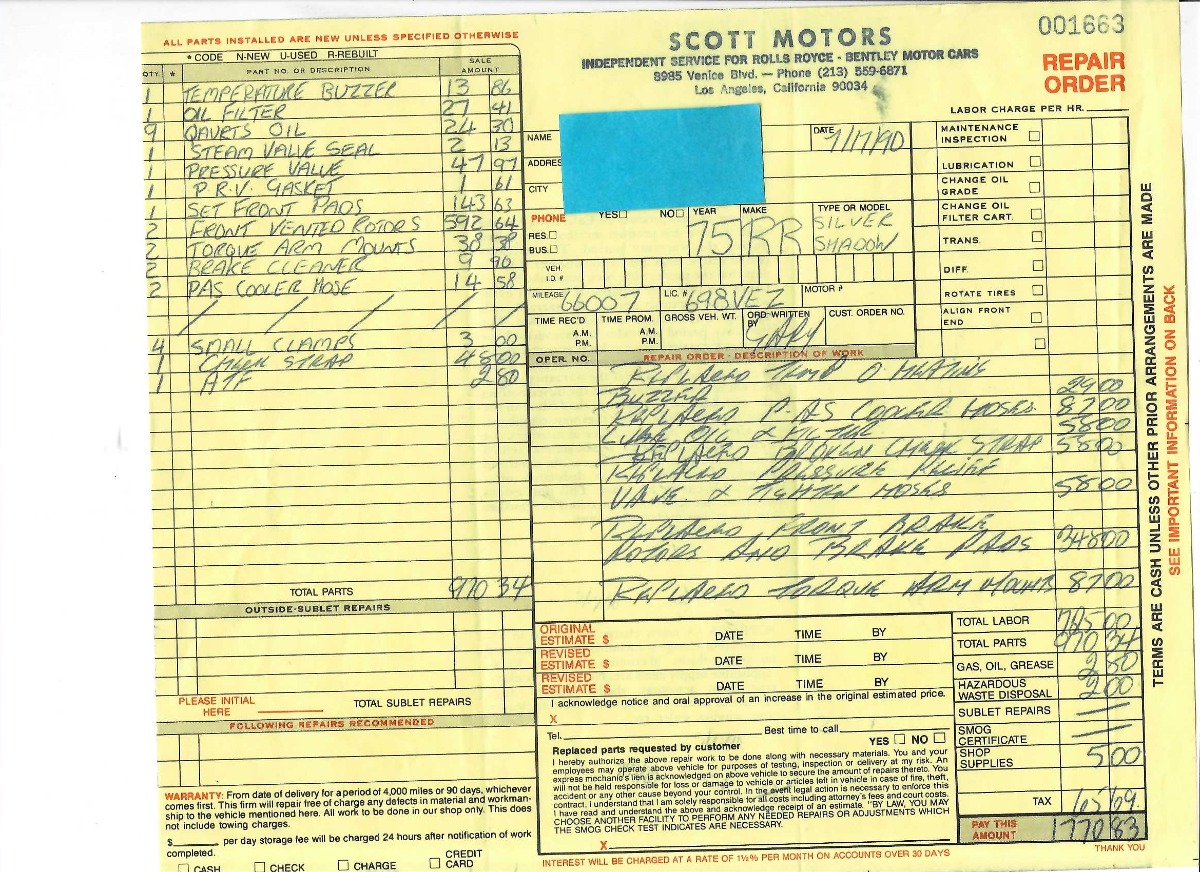 ALL PARTS INSTALLED ARE NEW UNLESS SPECIFIED OTHERWISE
* CODE N-NEW U-USED R-REBUILT
QTY. * PART NO. OR DESCRIPTION SALE AMOUNT
1 TEMPERATURE BUZZER 13 86
1 OIL FILTER 27 41
9 QAURTS OIL 24 30
1 STEAM VALVE SEAL 2 13
1 PRESSURE VALVE 47 97
1 P.R.V. GASKET 1 61
1 SET FRONT PADS 143 63
2 FRONT VENTED ROTORS 592 64
2 TORQUE ARM MOUNTS 38 38
2 BRAKE CLEANER 9 96
2 PAS COOLER HOSE 14 58
/ / / / /
4 SMALL CLAMPS 3 00
1 CHECK STRAP 48 00
1 ATF 2 80
TOTAL PARTS 970 34
OUTSIDE-SUBLET REPAIRS
PLEASE INITIAL HERE TOTAL SUBLET REPAIRS
FOLLOWING REPAIRS RECOMMENDED
WARRANTY: From date of delivery for a period of 4,000 miles or 90 days, whichever
comes first. This firm will repair free of charge any defects in material and workman-
ship to the vehicle mentioned here. All work to be done in our shop only. This does
not include towing charges.
$ per day storage fee will be charged 24 hours after notification of work
completed.
CASH CHECK CHARGE CREDIT CARD
SCOTT MOTORS
INDEPENDENT SERVICE FOR ROLLS ROYCE - BENTLEY MOTOR CARS
8985 Venice Blvd. — Phone (213) 559-6871
Los Angeles, California 90034
001663
REPAIR
ORDER
LABOR CHARGE PER HR.
NAME DATE 7/17/90
ADDRES
CITY
PHONE YES NO YEAR 75 MAKE RR TYPE OR MODEL SILVER SHADOW
RES.
BUS.
VEH. I.D. #
MILEAGE 66007 LIC. # 698VEZ MOTOR #
TIME REC'D A.M. P.M. TIME PROM. A.M. P.M. GROSS VEH. WT. ORD. WRITTEN BY GARY CUST. ORDER NO.
MAINTENANCE INSPECTION
LUBRICATION
CHANGE OIL GRADE
CHANGE OIL FILTER CART.
TRANS.
DIFF.
ROTATE TIRES
ALIGN FRONT END
OPER. NO. REPAIR ORDER - DESCRIPTION OF WORK
REPLACED TEMP O HEATING
BUZZER 29 00
REPLACED P.A.S COOLER HOSES 87 00
LUBE OIL & FILTER 58 00
REPLACED BROKEN CHECK STRAP 58 00
REPLACED PRESSURE RELIEF
VALVE & TIGHTEN HOSES 58 00
REPLACED FRONT BRAKE
ROTORS AND BRAKE PADS 348 00
REPLACED TORQUE ARM MOUNTS 87 00
ORIGINAL ESTIMATE $ DATE TIME BY
REVISED ESTIMATE $ DATE TIME BY
REVISED ESTIMATE $ DATE TIME BY
I acknowledge notice and oral approval of an increase in the original estimated price.
X
Tel. Best time to call
Replaced parts requested by customer YES NO
I hereby authorize the above repair work to be done along with necessary materials. You and your
employees may operate above vehicle for purposes of testing, inspection or delivery at my risk. An
express mechanic's lien is acknowledged on above vehicle to secure the amount of repairs thereto. You
will not be held responsible for loss or damage to vehicle or articles left in vehicle in case of fire, theft,
accident or any other cause beyond your control. In the event legal action is necessary to enforce this
contract, I understand that I am solely responsible for all costs including attorney's fees and court costs.
I have read and understand the above and acknowledge receipt of an estimate. "BY LAW, YOU MAY
CHOOSE ANOTHER FACILITY TO PERFORM ANY NEEDED REPAIRS OR ADJUSTMENTS WHICH
THE SMOG CHECK TEST INDICATES ARE NECESSARY.
X
INTEREST WILL BE CHARGED AT A RATE OF 1½% PER MONTH ON ACCOUNTS OVER 30 DAYS
TOTAL LABOR 725 00
TOTAL PARTS 970 34
GAS, OIL, GREASE 2 80
HAZARDOUS WASTE DISPOSAL 2 00
SUBLET REPAIRS —
SMOG CERTIFICATE —
SHOP SUPPLIES 5 00
TAX 65 69
PAY THIS AMOUNT 1770 83
THANK YOU
TERMS ARE CASH UNLESS OTHER PRIOR ARRANGEMENTS ARE MADE
SEE IMPORTANT INFORMATION ON BACK